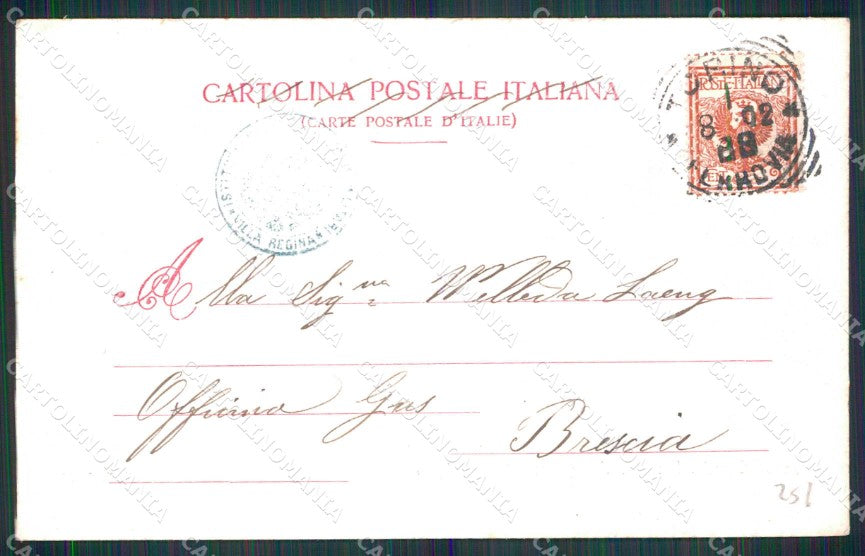 CARTOLINA POSTALE ITALIANA
(CARTE POSTALE D'ITALIE)
TORINO
POSTE ITALIANE
8 1 02
FERROVIA
VILLA REGINA
Alla Sig.na Welleda Laeng
Officina Gas
Brescia
251
CARTOLINOMANIA